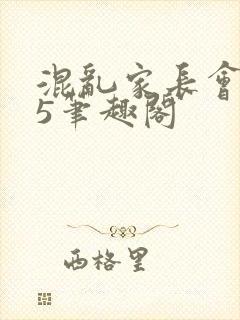 混亂家長會
5筆趣閣
西格里